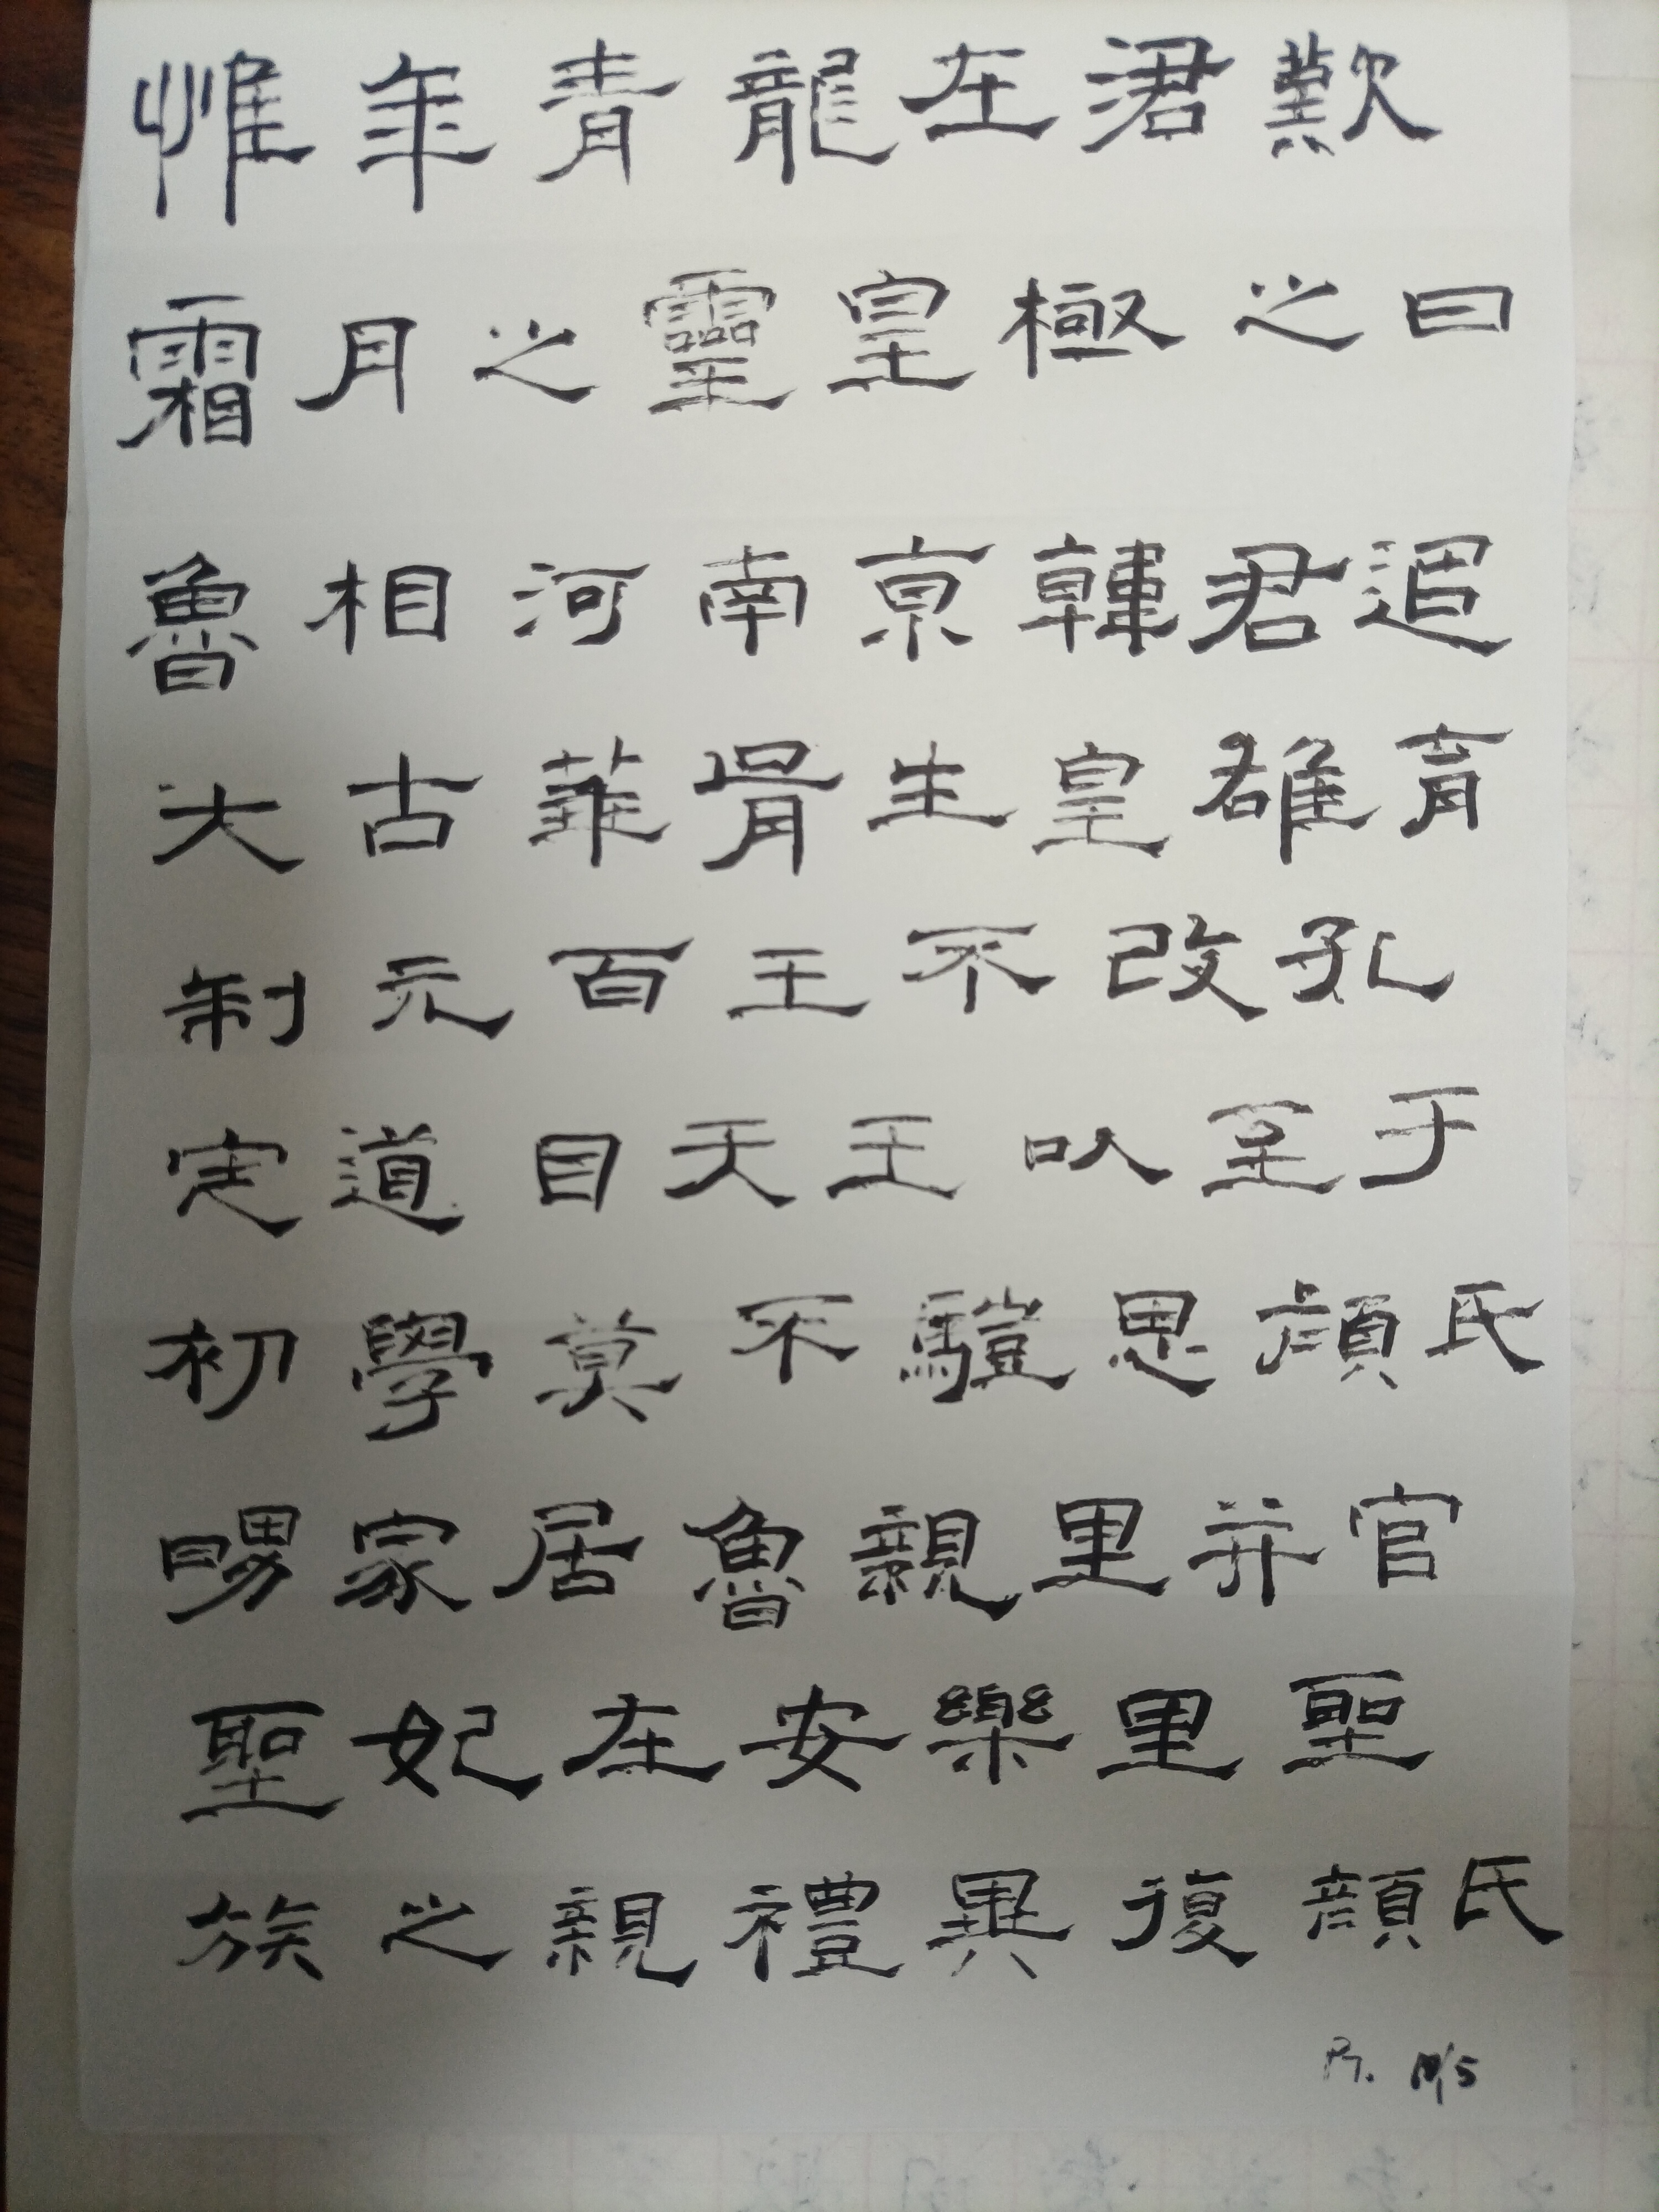 惟年青龍在涒歎
霜月之靈皇極之日
魯相河南京韓君追
大古華胥生皇雄育
制元百王不改孔
定道自天王以至于
初學莫不驥思顏氏
舅家居魯親里并官
聖妃在安樂里聖
族之親禮異復顏氏